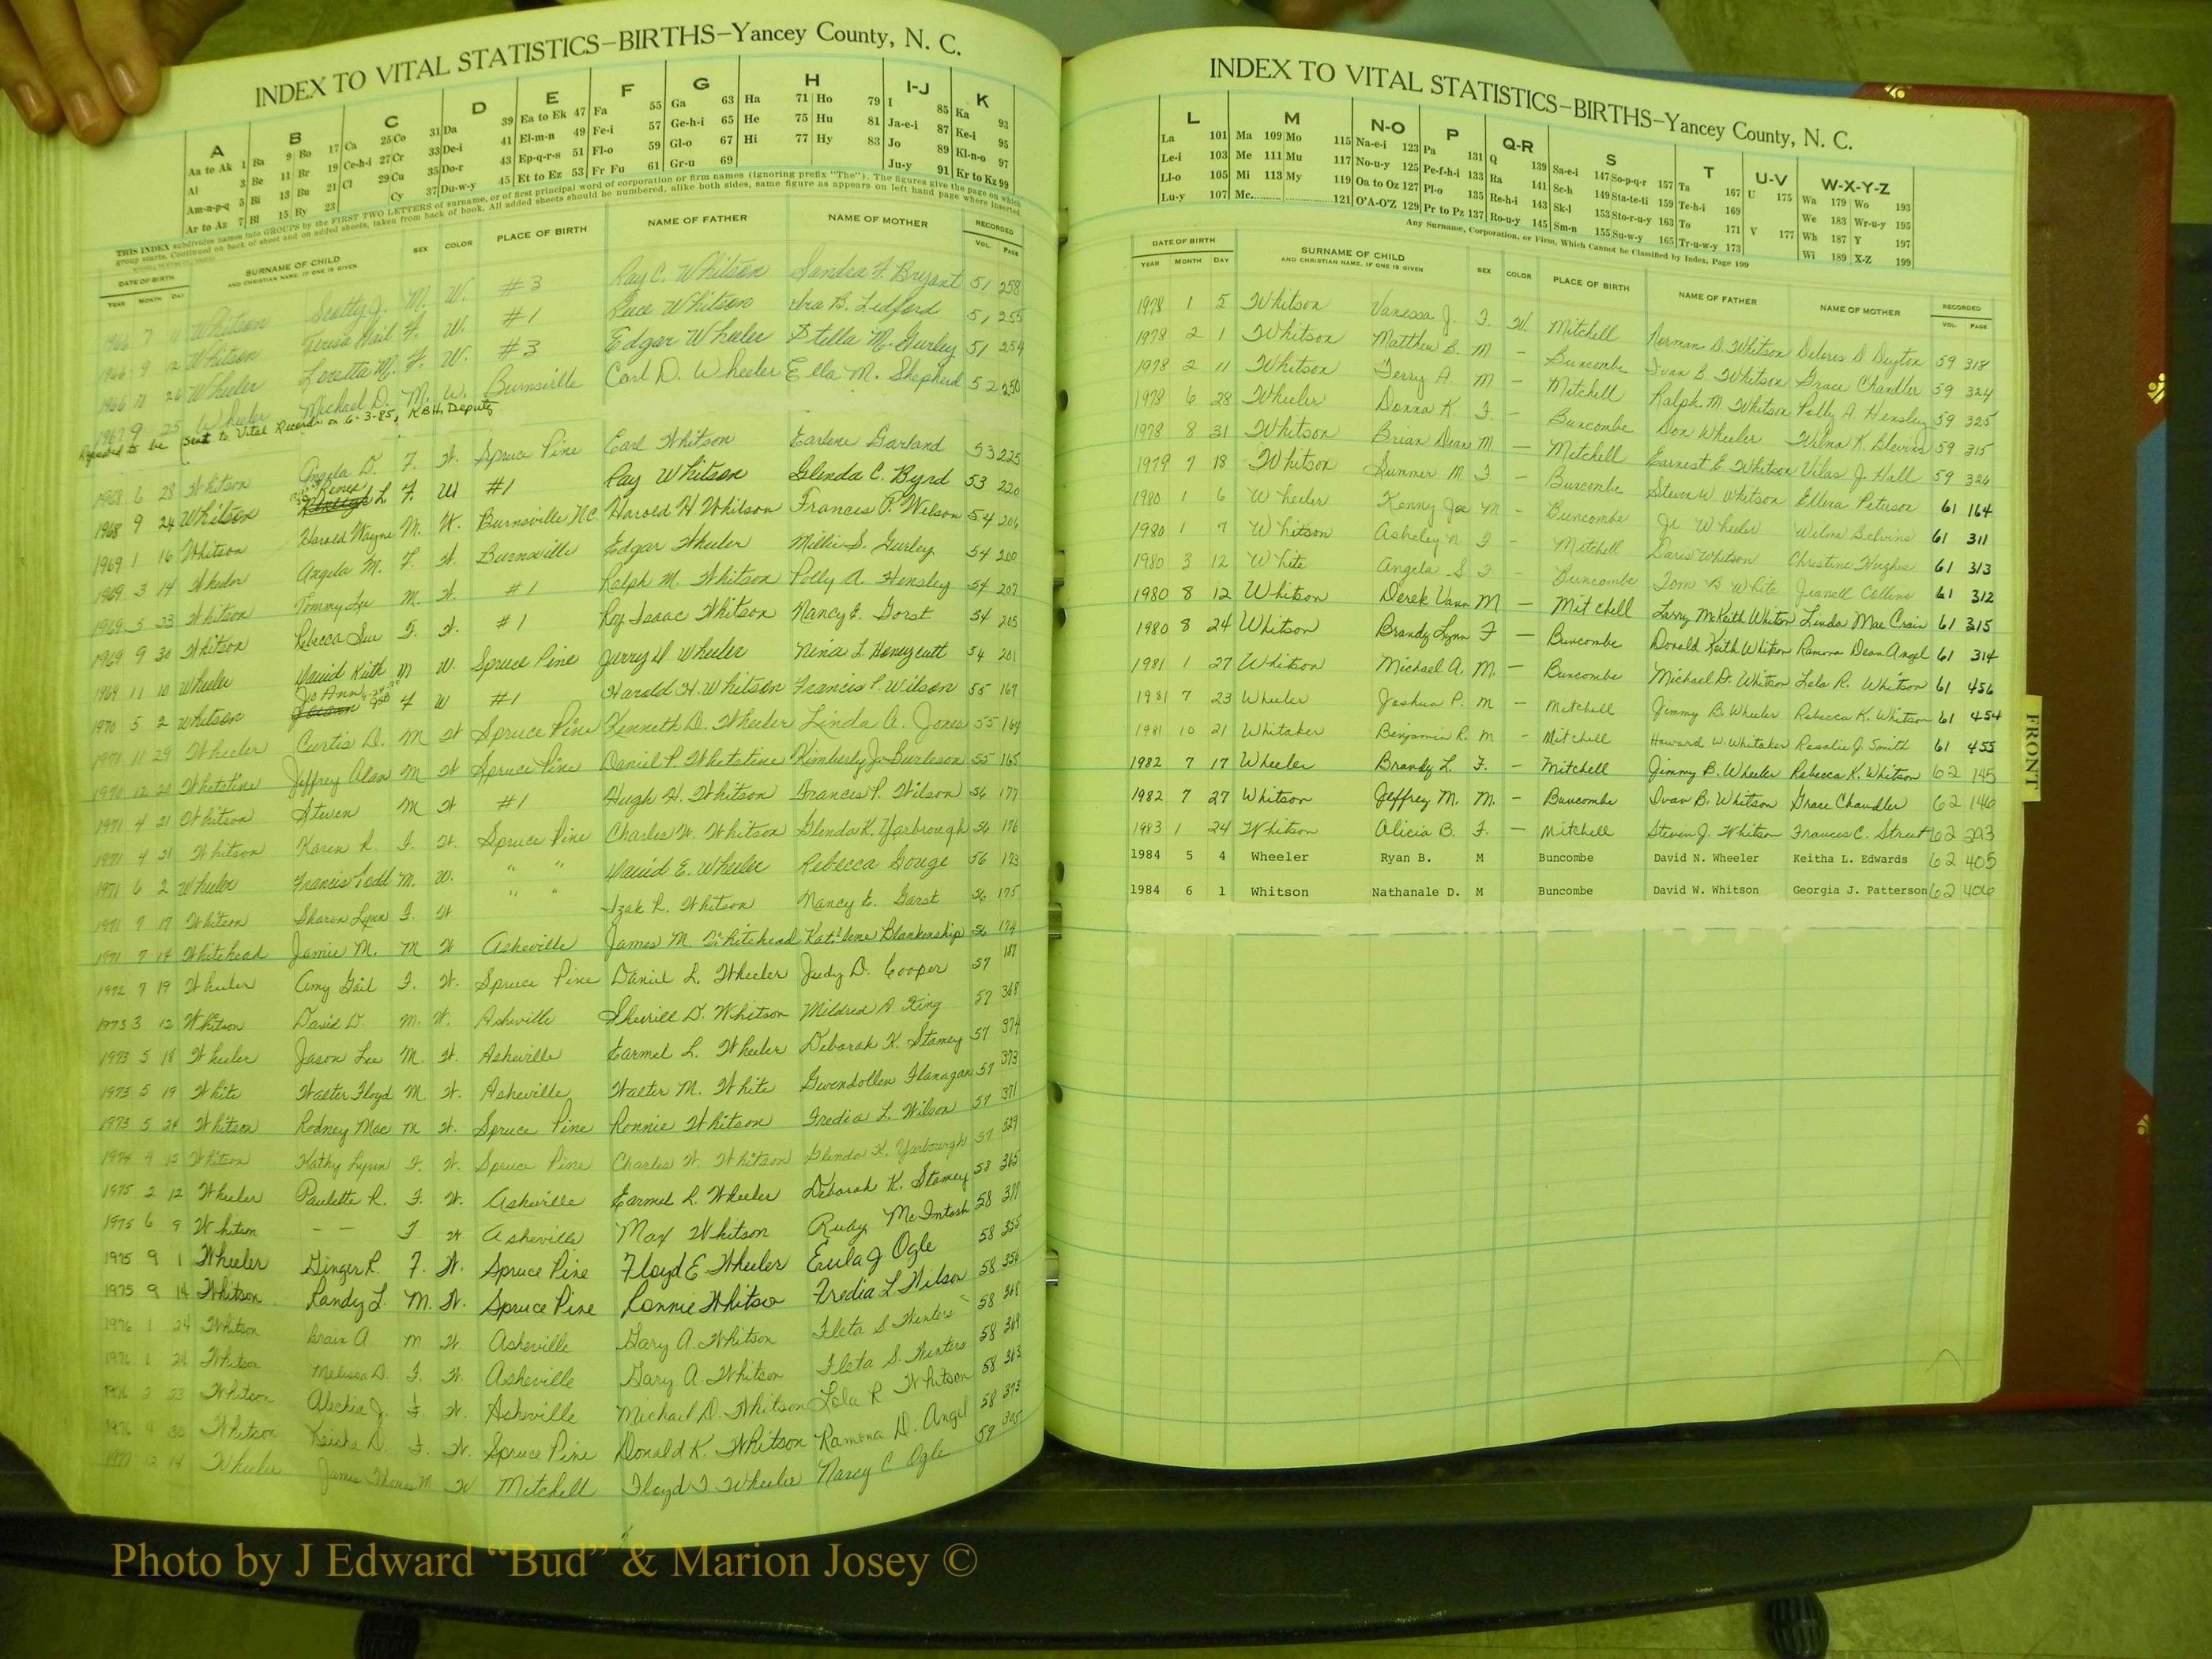 INDEX TO VITAL STATISTICS—BIRTHS—Yancey County, N. C.
A B C D E F G H I-J K
Aa to Ak 1 Ba 9 Bo 17 Ca 25 Co 31 Da 39 Ea to Ek 47 Fa 55 Ga 63 Ha 71 Ho 79 I 85 Ka 93
Al 3 Be 11 Br 19 Ce-h-i 27 Cr 33 De-i 41 El-m-n 49 Fe-i 57 Ge-h-i 65 He 75 Hu 81 Ja-e-i 87 Ke-i 95
Am-n-p-q 5 Bi 13 Bu 21 Cl 29 Cu 35 Do-r 43 Ep-q-r-s 51 Fl-o 59 Gl-o 67 Hi 77 Hy 83 Jo 89 Kl-n-o 97
Ar to Az 7 Bl 15 By 23 Cy 37 Du-w-y 45 Et to Ez 53 Fr Fu 61 Gr-u 69 Ju-y 91 Kr to Kz 99
THIS INDEX subdivides names into GROUPS by the FIRST TWO LETTERS of surname, or of first principal word of corporation or firm names (ignoring prefix "The"). The figures give the page on which
group starts. Continued on back of sheet and on added sheets, taken from back of book. All added sheets should be numbered, alike both sides, same figure as appears on left hand page where inserted.
DATE OF BIRTH SURNAME OF CHILD SEX COLOR PLACE OF BIRTH NAME OF FATHER NAME OF MOTHER RECORDED
YEAR MONTH DAY AND CHRISTIAN NAME, IF ONE IS GIVEN VOL. PAGE
1966 7 11 Whitson Scotty J. M. W. #3 Ray C. Whitson Sandra F. Bryant 51 258
1966 9 12 Whitson Teresa Gail F. W. #1 Reece Whitson Ira B. Ledford 51 255
1966 11 26 Wheeler Loretta M. F. W. #3 Edgar Wheeler Stella M. Gurley 51 254
1967 9 25 Wheeler Michael D. M. W. Burnsville Carl D. Wheeler Ella M. Shepherd 52 250
to be sent to Vital Records on 6-3-85, KBH, Deputy
1968 6 28 Whitson Angela D. F. W. Spruce Pine Earl Whitson Earlene Garland 53 225
1968 9 24 Whitson Renee L F. W #1 Ray Whitson Glenda C. Byrd 53 220
1969 1 16 Whitson Harold Wayne M. W. Burnsville N.C. Harold H Whitson Frances P. Wilson 54 206
1969 3 14 Wheeler Angela M. F. W. Burnsville Edgar Wheeler Millie S. Gurley 54 200
1969 5 23 Whitson Tommy Lee M. W. #1 Ralph M. Whitson Polly A. Hensley 54 207
1969 9 30 Whitson Rebecca Sue F. W. #1 Roy Isaac Whitson Nancy E. Gorst 54 205
1969 11 10 Wheeler David Keith M W. Spruce Pine Jerry D Wheeler Nina L Honeycutt 54 201
1970 5 2 Whitson Jo Ann F W #1 Harold H. Whitson Francis P. Wilson 55 167
1970 11 29 Wheeler Curtis D. M W Spruce Pine Kenneth D. Wheeler Linda A. Jones 55 164
1970 12 20 Whetstine Jeffrey Alan M W Spruce Pine Daniel P. Whetstine Kimberly J. Burleson 55 165
1971 4 21 Whitson Steven M W #1 Hugh H. Whitson Frances P. Wilson 56 177
1971 4 21 Whitson Karen R F. W. Spruce Pine Charles W. Whitson Glenda K. Yarbrough 56 176
1971 6 2 Wheeler Francis Todd M. W. " " David E. Wheeler Rebecca Gouge 56 173
1971 9 17 Whitson Sharon Lynn F. W " " Izak R. Whitson Nancy E. Garst 56 175
1971 7 14 Whitehead Jamie M. M W Asheville James M. Whitehead Kathlene Blankenship 56 174
1972 7 19 Wheeler Amy Gail F. W. Spruce Pine Daniel L. Wheeler Judy D. Cooper 57 187
1973 3 12 Whitson David D. M. W. Asheville Sherrill D. Whitson Mildred A King 57 368
1973 5 18 Wheeler Jason Lee M. W. Asheville Earmel L. Wheeler Deborah K. Stamey 57 374
1973 5 19 White Walter Floyd M W. Asheville Walter M. White Gwendollen Flanagan 57 373
1973 5 24 Whitson Rodney Mac M W. Spruce Pine Ronnie Whitson Fredia L. Wilson 57 371
1974 4 15 Whitson Kathy Lynn F. W. Spruce Pine Charles W. Whitson Glenda K. Yarbourgh 57 529
1975 2 12 Wheeler Paulette R. F. W. Asheville Earmel L. Wheeler Deborah K. Stamey 58 365
1975 6 9 Whitson – – F W Asheville Max Whitson Ruby McIntosh 58 371
1975 9 1 Wheeler Ginger R. F. W. Spruce Pine Floyd E. Wheeler Eula J Ogle 58 355
1975 9 14 Whitson Randy L. M. W. Spruce Pine Ronnie Whitson Fredia L Wilson 58 356
1976 1 24 Whitson Brain A M W Asheville Gary A. Whitson Fleta S Winters 58 368
1976 1 24 Whitson Melissa D. F. W. Asheville Gary A. Whitson Fleta S. Winters 58 369
1976 3 23 Whitson Alechia J. F. W. Asheville Michael D. Whitson Lola R Whitson 58 363
1976 4 30 Whitson Keisha D. F. W. Spruce Pine Donald K. Whitson Ramona D. Angel 58 373
1977 12 14 Wheeler James Thomas M W Mitchell Floyd T Wheeler Nancy C Ogle 59 300
INDEX TO VITAL STATISTICS—BIRTHS—Yancey County, N. C.
L M N-O P Q-R S T U-V W-X-Y-Z
La 101 Ma 109 Mo 115 Na-e-i 123 Pa 131 Q 139 Sa-e-i 147 So-p-q-r 157 Ta 167 U 175 Wa 179 Wo 193
Le-i 103 Me 111 Mu 117 No-u-y 125 Pe-f-h-i 133 Ra 141 Sc-h 149 Sta-te-ti 159 Te-h-i 169 We 183 Wr-u-y 195
Ll-o 105 Mi 113 My 119 Oa to Oz 127 Pl-o 135 Re-h-i 143 Sk-l 153 Sto-r-u-y 163 To 171 V 177 Wh 187 Y 197
Lu-y 107 Mc 121 O'A-O'Z 129 Pr to Pz 137 Ro-u-y 145 Sm-n 155 Su-w-y 165 Tr-u-w-y 173 Wi 189 X-Z 199
Any Surname, Corporation, or Firm, Which Cannot be Classified by Index, Page 199
DATE OF BIRTH SURNAME OF CHILD SEX COLOR PLACE OF BIRTH NAME OF FATHER NAME OF MOTHER RECORDED
YEAR MONTH DAY AND CHRISTIAN NAME, IF ONE IS GIVEN VOL. PAGE
1978 1 5 Whitson Vanessa J. F. W. Mitchell Norman D. Whitson Deloris D Deyton 59 318
1978 2 1 Whitson Matthew B. M – Buncombe Ivan B Whitson Grace Chandler 59 324
1978 2 11 Whitson Terry A. M – Mitchell Ralph M Whitson Polly A. Hensley 59 325
1978 6 28 Wheeler Donna K F. – Buncombe Don Wheeler Wilma K. Blevins 59 315
1978 8 31 Whitson Brian Dean M – Mitchell Earnest E Whitson Vilas J. Hall 59 326
1979 7 18 Whitson Summer M F – Buncombe Steven W. Whitson Ellena Peterson 61 164
1980 1 6 Wheeler Kenny Joe M – Buncombe Je Wheeler Wilma Belvins 61 311
1980 1 7 Whitson Asheley N F – Mitchell Daris Whitson Christine Hughes 61 313
1980 3 12 White Angela S F – Buncombe Tom B White Jeanell Collins 61 312
1980 8 12 Whitson Derek Vann M – Mitchell Larry McKeith Whitson Linda Mae Crain 61 315
1980 8 24 Whitson Brandy Lynn F – Buncombe Donald Keith Whitson Ramona Dean Angel 61 314
1981 1 27 Whitson Michael A. M. – Buncombe Michael D. Whitson Lela R. Whitson 61 456
1981 7 23 Wheeler Joshua P. M – Mitchell Jimmy B. Wheeler Rebecca K. Whitson 61 454
1981 10 21 Whitaker Benjamin R. M – Mitchell Howard W. Whitaker Rosalie J. Smith 61 455
1982 7 17 Wheeler Brandy L. F. – Mitchell Jimmy B. Wheeler Rebecca K. Whitson 62 145
1982 7 27 Whitson Jeffrey M. M. – Buncombe Ivan B. Whitson Grace Chandler 62 146
1983 1 24 Whitson Alicia B. F. – Mitchell Steven J. Whitson Frances C. Street 62 293
1984 5 4 Wheeler Ryan B. M Buncombe David N. Wheeler Keitha L. Edwards 62 405
1984 6 1 Whitson Nathanale D. M Buncombe David W. Whitson Georgia J. Patterson 62 406
FRONT
Photo by J Edward “Bud” & Marion Josey ©